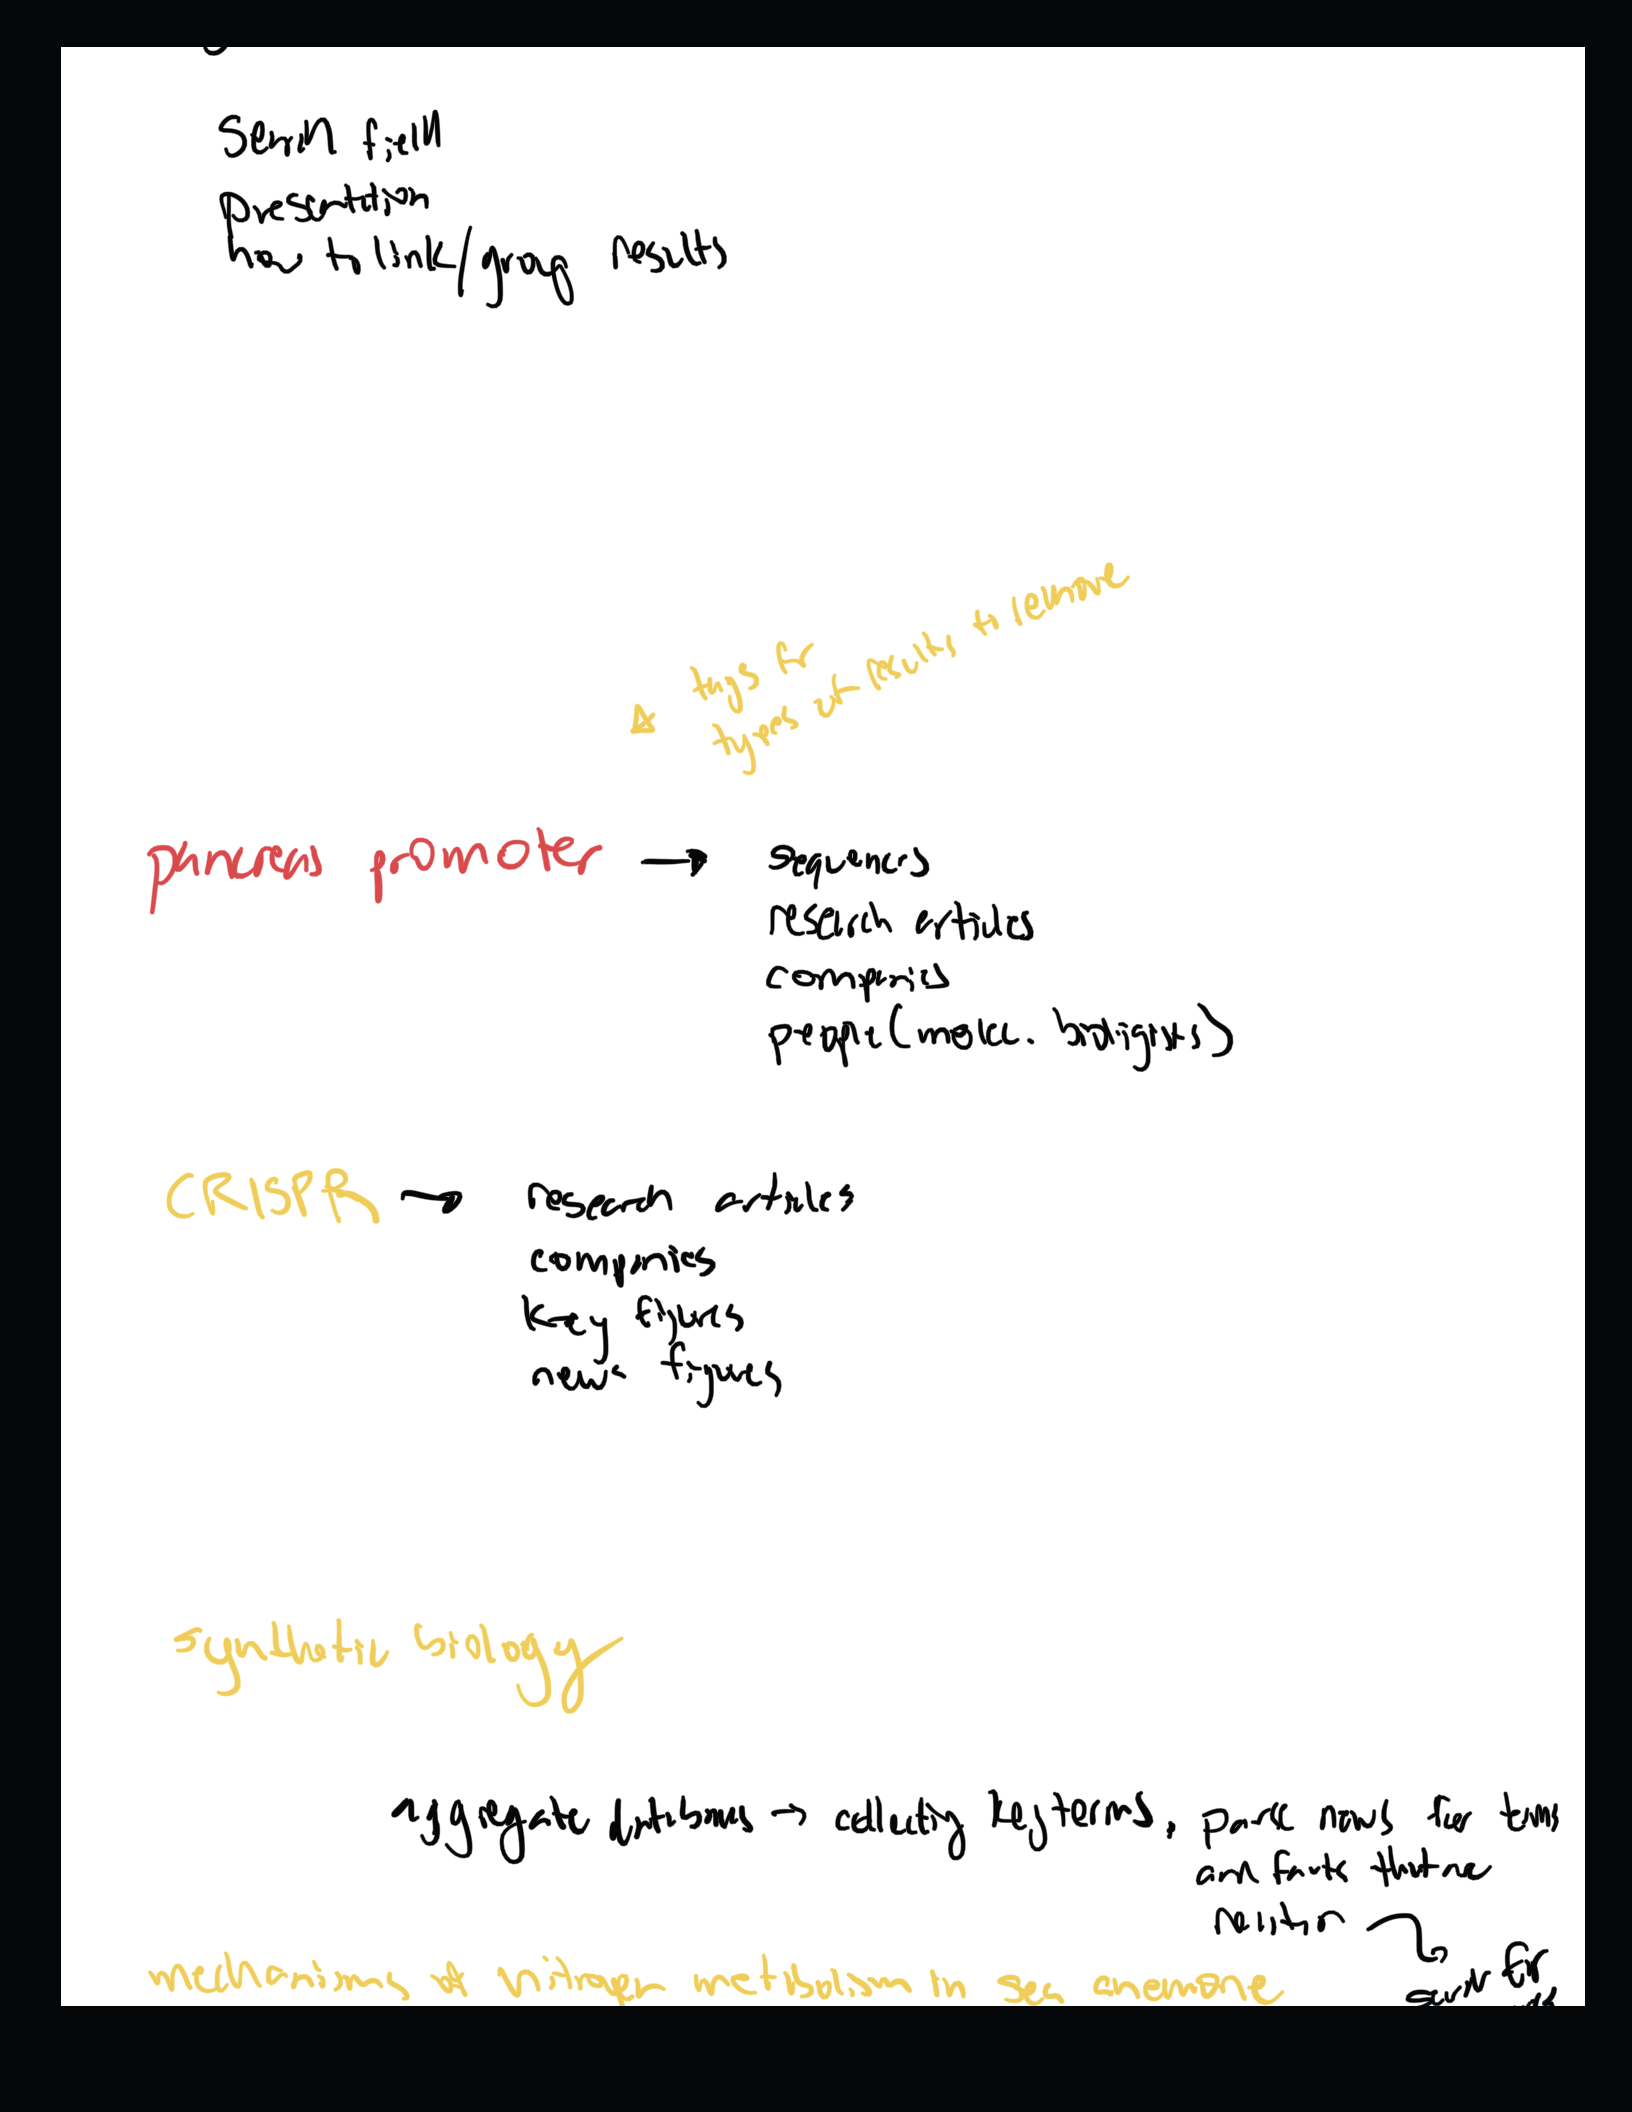 presentation
how to link/group results
tags for
types of results to remove
pancreas promoter → sequences
research articles
companies
people (molec. biologists)
CRISPR → research articles
companies
key figures
news figures
synthetic biology
aggregate databases → collecting key terms, parse rows for terms
and facts that are
mechanisms of nitrogen metabolism in sea anemone
for